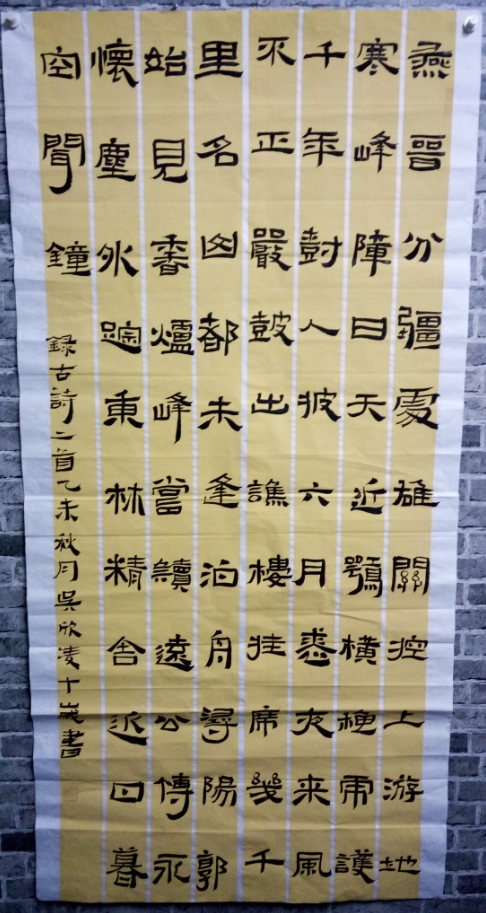 燕晉分疆處雄關控上游地
寒峰障日天近鶚橫秋雨護
千年尌人披六月裘夜來風
不正嚴鼓出譙樓挂席幾千
里名山都未逢泊舟潯陽郭
始見香爐峰嘗讀遠公傳永
懷塵外蹤東林精舍近日暮
空聞鐘
錄古詩二首乙未秋月吳欣凌十歲書